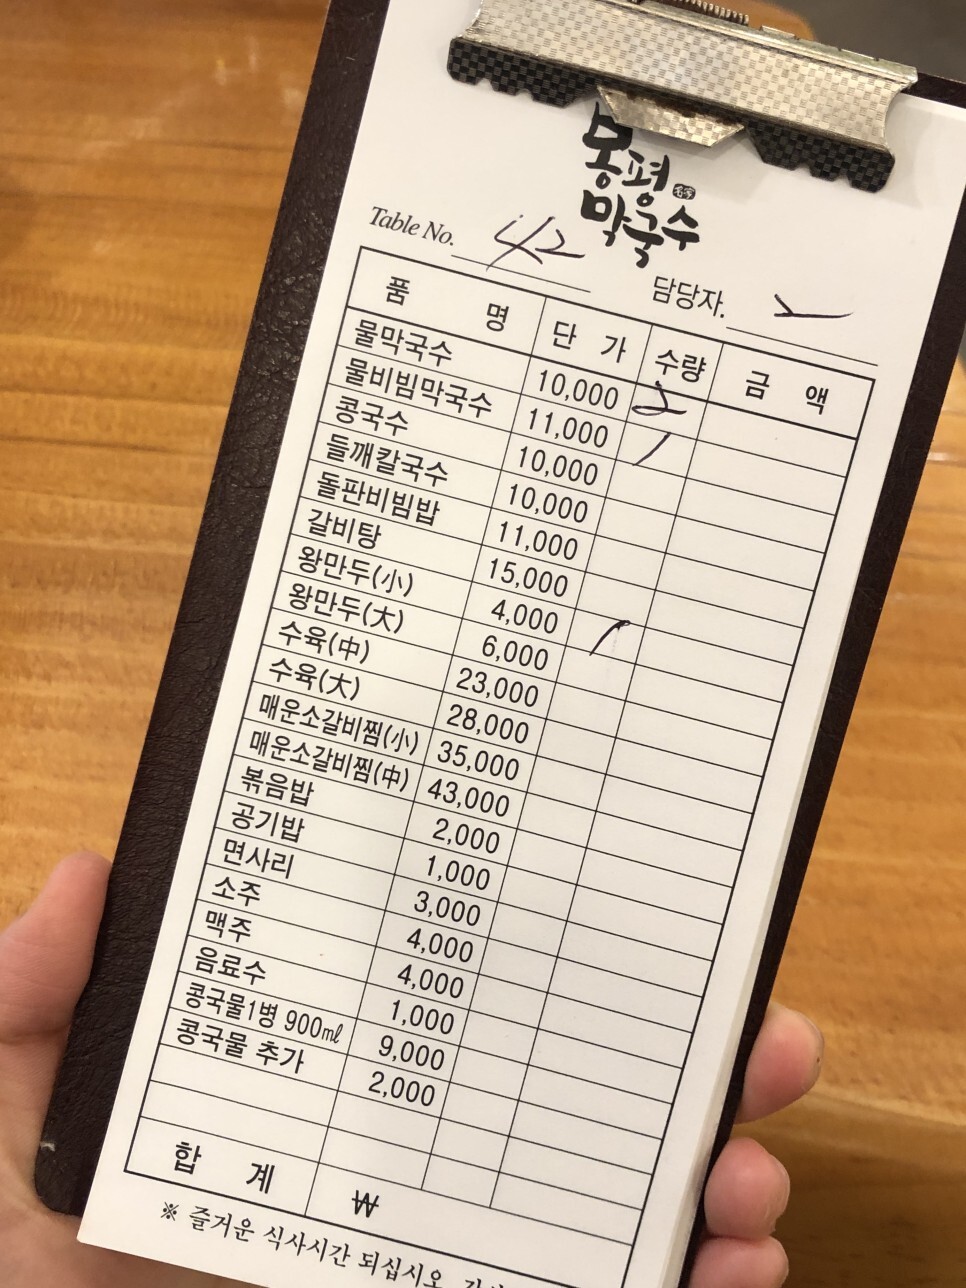 봉평
막국수
Table No. 42 담당자.
품 명 단 가 수량 금 액
물막국수 10,000 2
물비빔막국수 11,000 1
콩국수 10,000
들깨칼국수 10,000
돌판비빔밥 11,000
갈비탕 15,000
왕만두(小) 4,000 1
왕만두(大) 6,000
수육(中) 23,000
수육(大) 28,000
매운소갈비찜(小) 35,000
매운소갈비찜(中) 43,000
볶음밥 2,000
공기밥 1,000
면사리 3,000
소주 4,000
맥주 4,000
음료수 1,000
콩국물1병 900㎖ 9,000
콩국물 추가 2,000
합 계 ₩
※ 즐거운 식사시간 되십시오.